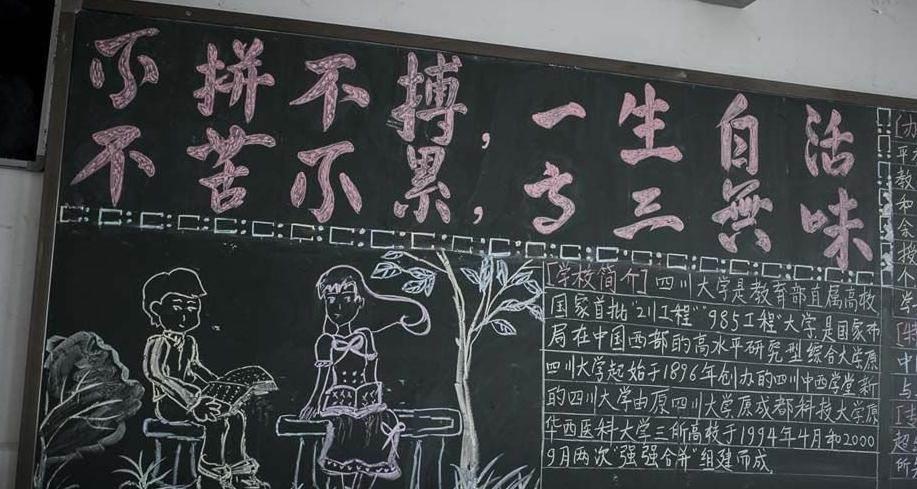 不拼不搏,一生自活
不苦不累,高三無味
[学校简介]四川大学是教育部直属高校
国家首批"211工程""985工程"大学是国家布
局在中国西部的高水平研究型综合大学原
四川大学起始于1896年创办的四川中西学堂新
的四川大学由原四川大学原成都科技大学原
华西医科大学三所高校于1994年4月和2000
9月两次"强强合并"组建而成
教
和
个
中
与
超
所